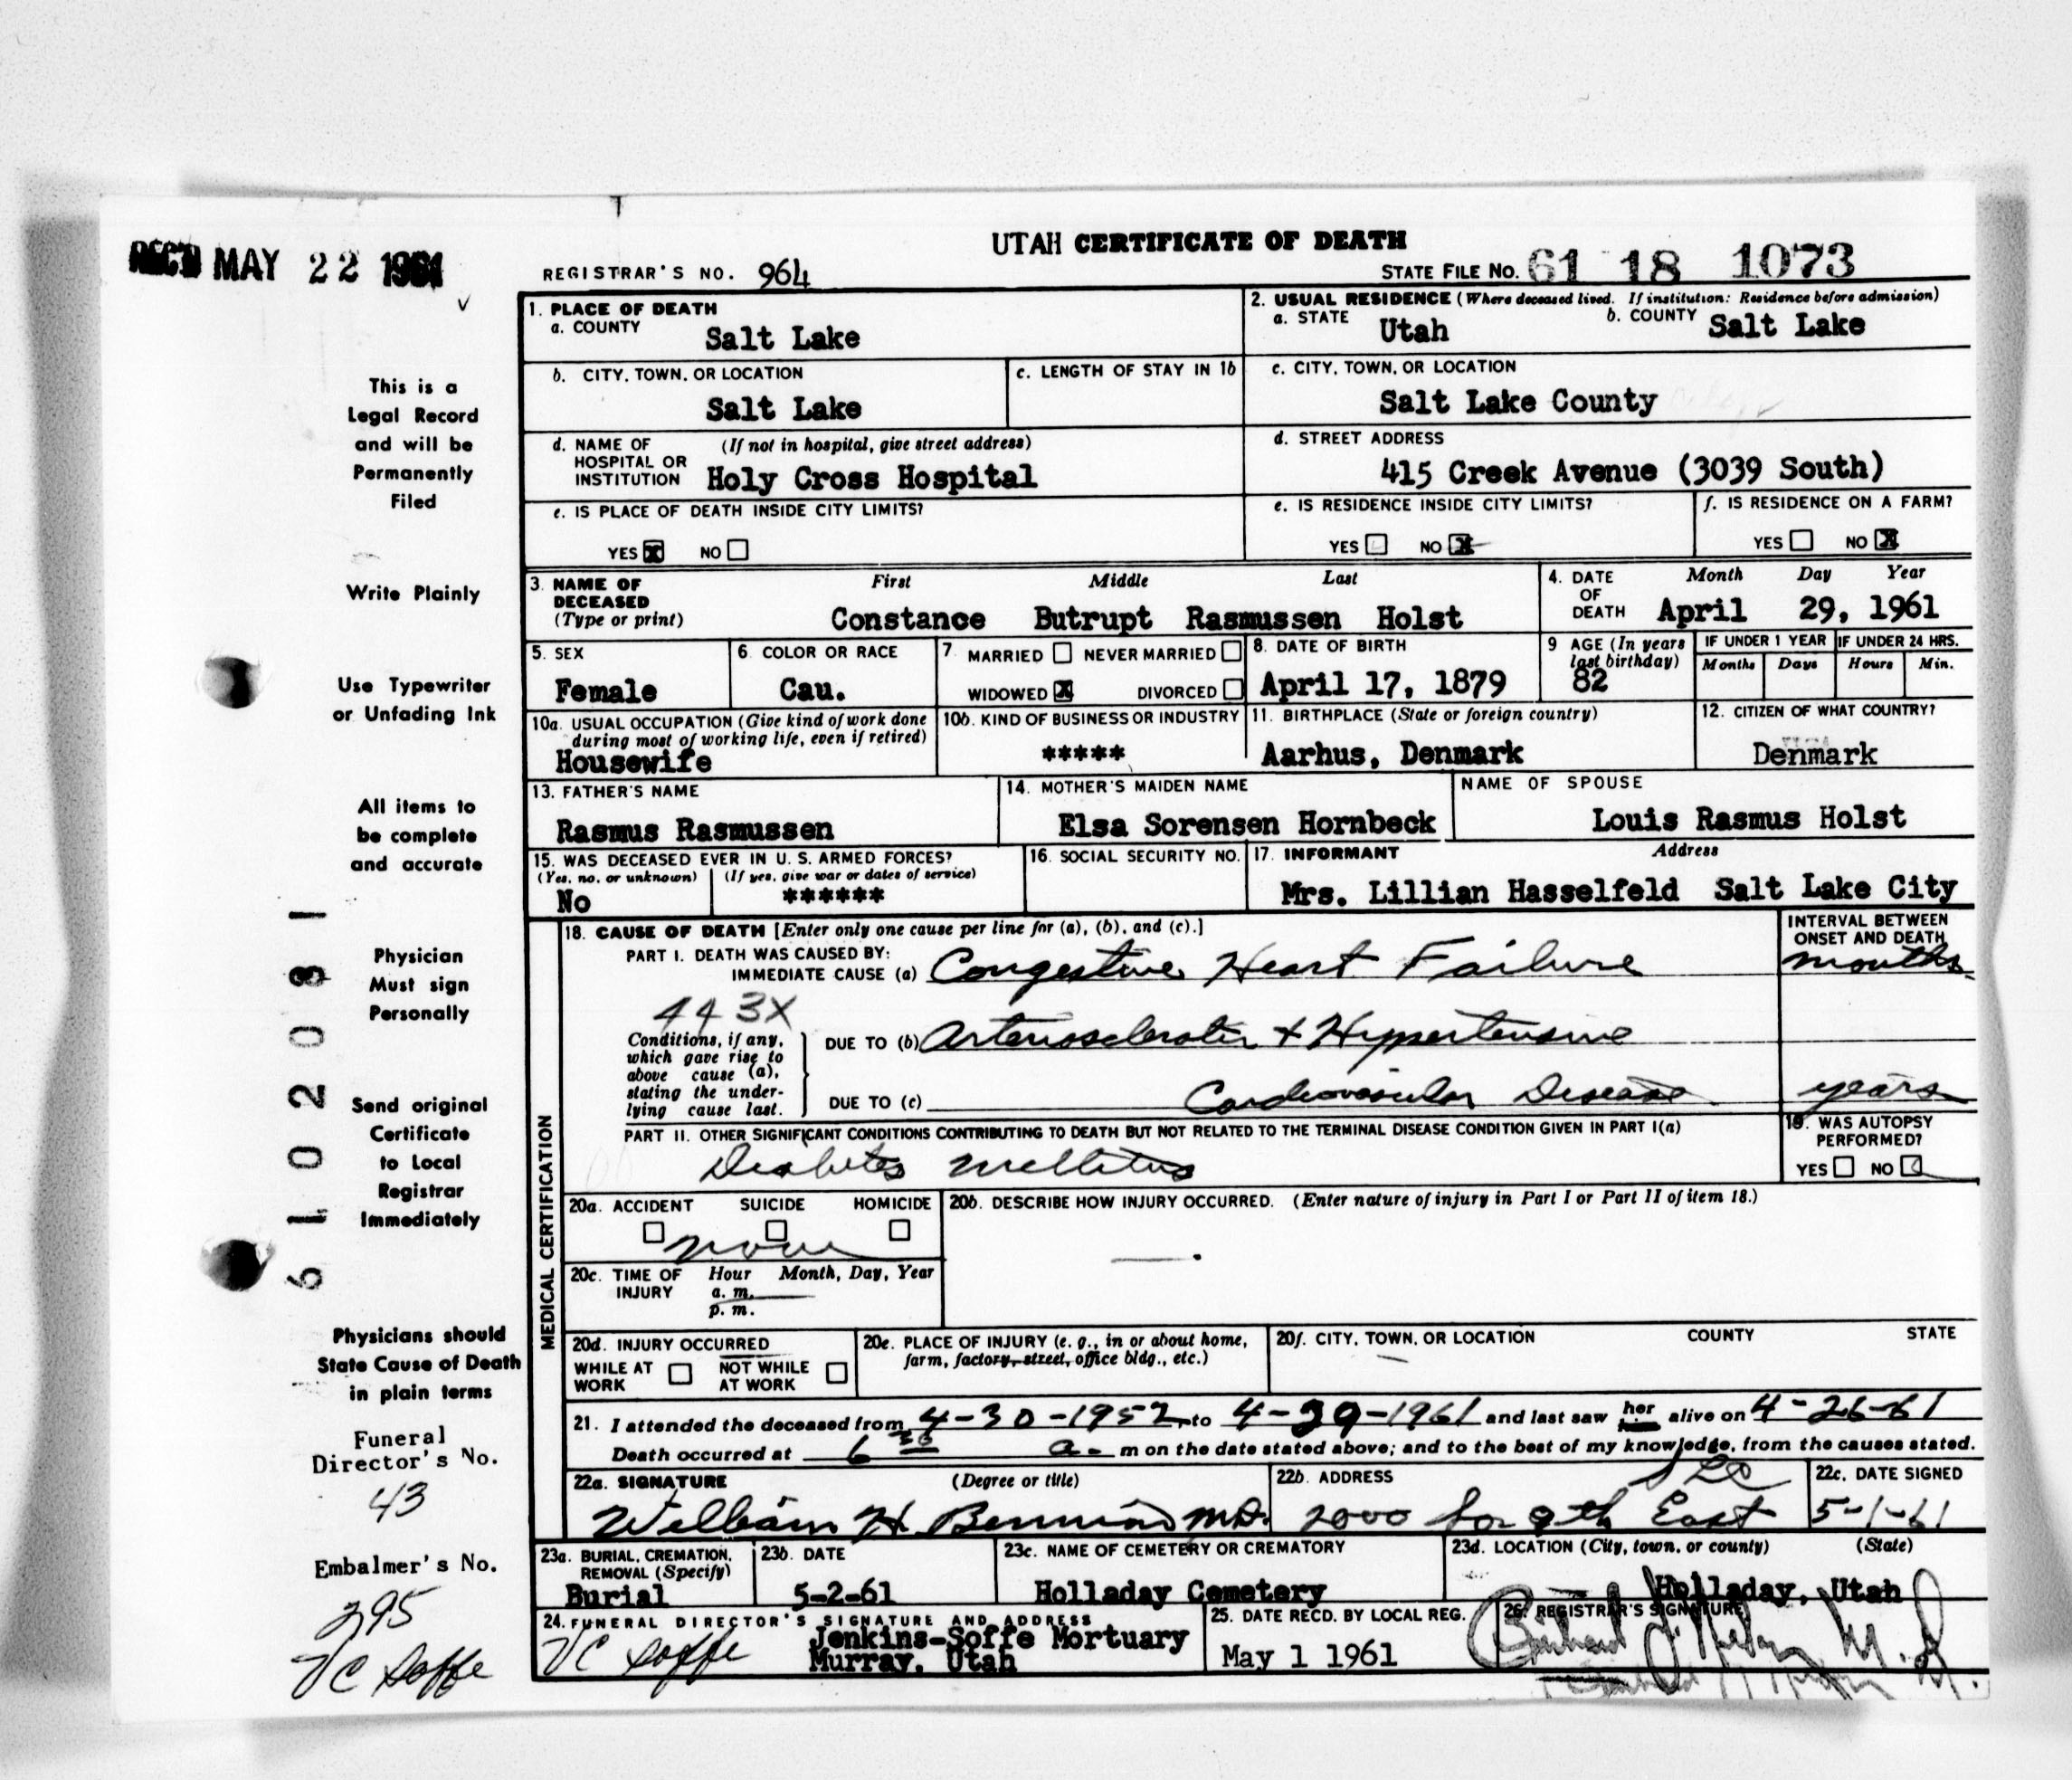 REC'D MAY 22 1961
UTAH CERTIFICATE OF DEATH
REGISTRAR'S NO. 964
STATE FILE No. 61 18 1073
This is a
Legal Record
and will be
Permanently
Filed
Write Plainly
Use Typewriter
or Unfading Ink
All items to
be complete
and accurate
Physician
Must sign
Personally
Send original
Certificate
to Local
Registrar
Immediately
Physicians should
State Cause of Death
in plain terms
Funeral
Director's No.
43
Embalmer's No.
295
VC Soffe
6 1 0 2 0 8 1
1. PLACE OF DEATH
a. COUNTY Salt Lake
b. CITY, TOWN, OR LOCATION
Salt Lake
c. LENGTH OF STAY IN 1b
d. NAME OF (If not in hospital, give street address)
HOSPITAL OR
INSTITUTION Holy Cross Hospital
e. IS PLACE OF DEATH INSIDE CITY LIMITS?
YES X NO
2. USUAL RESIDENCE (Where deceased lived. If institution: Residence before admission)
a. STATE Utah b. COUNTY Salt Lake
c. CITY, TOWN, OR LOCATION
Salt Lake County
d. STREET ADDRESS
415 Creek Avenue (3039 South)
e. IS RESIDENCE INSIDE CITY LIMITS?
YES NO X
f. IS RESIDENCE ON A FARM?
YES NO X
3. NAME OF DECEASED (Type or print)
First Middle Last
Constance Butrupt Rasmussen Holst
4. DATE OF DEATH
Month Day Year
April 29, 1961
5. SEX
Female
6. COLOR OR RACE
Cau.
7. MARRIED NEVER MARRIED
WIDOWED X DIVORCED
8. DATE OF BIRTH
April 17, 1879
9 AGE (In years
last birthday)
82
IF UNDER 1 YEAR IF UNDER 24 HRS.
Months Days Hours Min.
10a. USUAL OCCUPATION (Give kind of work done
during most of working life, even if retired)
Housewife
10b. KIND OF BUSINESS OR INDUSTRY
*****
11. BIRTHPLACE (State or foreign country)
Aarhus, Denmark
12. CITIZEN OF WHAT COUNTRY?
Denmark
13. FATHER'S NAME
Rasmus Rasmussen
14. MOTHER'S MAIDEN NAME
Elsa Sorensen Hornbeck
NAME OF SPOUSE
Louis Rasmus Holst
15. WAS DECEASED EVER IN U. S. ARMED FORCES?
(Yes, no, or unknown) (If yes, give war or dates of service)
No ******
16. SOCIAL SECURITY NO.
17. INFORMANT Address
Mrs. Lillian Hasselfeld Salt Lake City
MEDICAL CERTIFICATION
18. CAUSE OF DEATH [Enter only one cause per line for (a), (b), and (c).]
PART I. DEATH WAS CAUSED BY:
IMMEDIATE CAUSE (a) Congestive Heart Failure
INTERVAL BETWEEN
ONSET AND DEATH
months
443X
Conditions, if any,
which gave rise to
above cause (a),
stating the under-
lying cause last.
DUE TO (b) Arteriosclerotic + Hypertensive
DUE TO (c) Cardiovascular Disease
years
PART II. OTHER SIGNIFICANT CONDITIONS CONTRIBUTING TO DEATH BUT NOT RELATED TO THE TERMINAL DISEASE CONDITION GIVEN IN PART I(a)
Diabetes Mellitus
19. WAS AUTOPSY
PERFORMED?
YES NO
20a. ACCIDENT SUICIDE HOMICIDE
none
20b. DESCRIBE HOW INJURY OCCURRED. (Enter nature of injury in Part I or Part II of item 18.)
20c. TIME OF INJURY
Hour Month, Day, Year
a. m.
p. m.
20d. INJURY OCCURRED
WHILE AT WORK NOT WHILE AT WORK
20e. PLACE OF INJURY (e. g., in or about home,
farm, factory, street, office bldg., etc.)
20f. CITY, TOWN, OR LOCATION COUNTY STATE
21. I attended the deceased from 4-30-1952, to 4-29-1961 and last saw her alive on 4-26-61
Death occurred at 6 30 a. m on the date stated above; and to the best of my knowledge, from the causes stated.
22a. SIGNATURE (Degree or title)
William H. M.D.
22b. ADDRESS
SLC
2000 So 9th East
22c. DATE SIGNED
5-1-61
23a. BURIAL, CREMATION,
REMOVAL (Specify)
Burial
23b. DATE
5-2-61
23c. NAME OF CEMETERY OR CREMATORY
Holladay Cemetery
23d. LOCATION (City, town, or county) (State)
Holladay, Utah
24. FUNERAL DIRECTOR'S SIGNATURE AND ADDRESS
VC Soffe Jenkins-Soffe Mortuary
Murray, Utah
25. DATE RECD. BY LOCAL REG.
May 1 1961
26. REGISTRAR'S SIGNATURE
M.D.